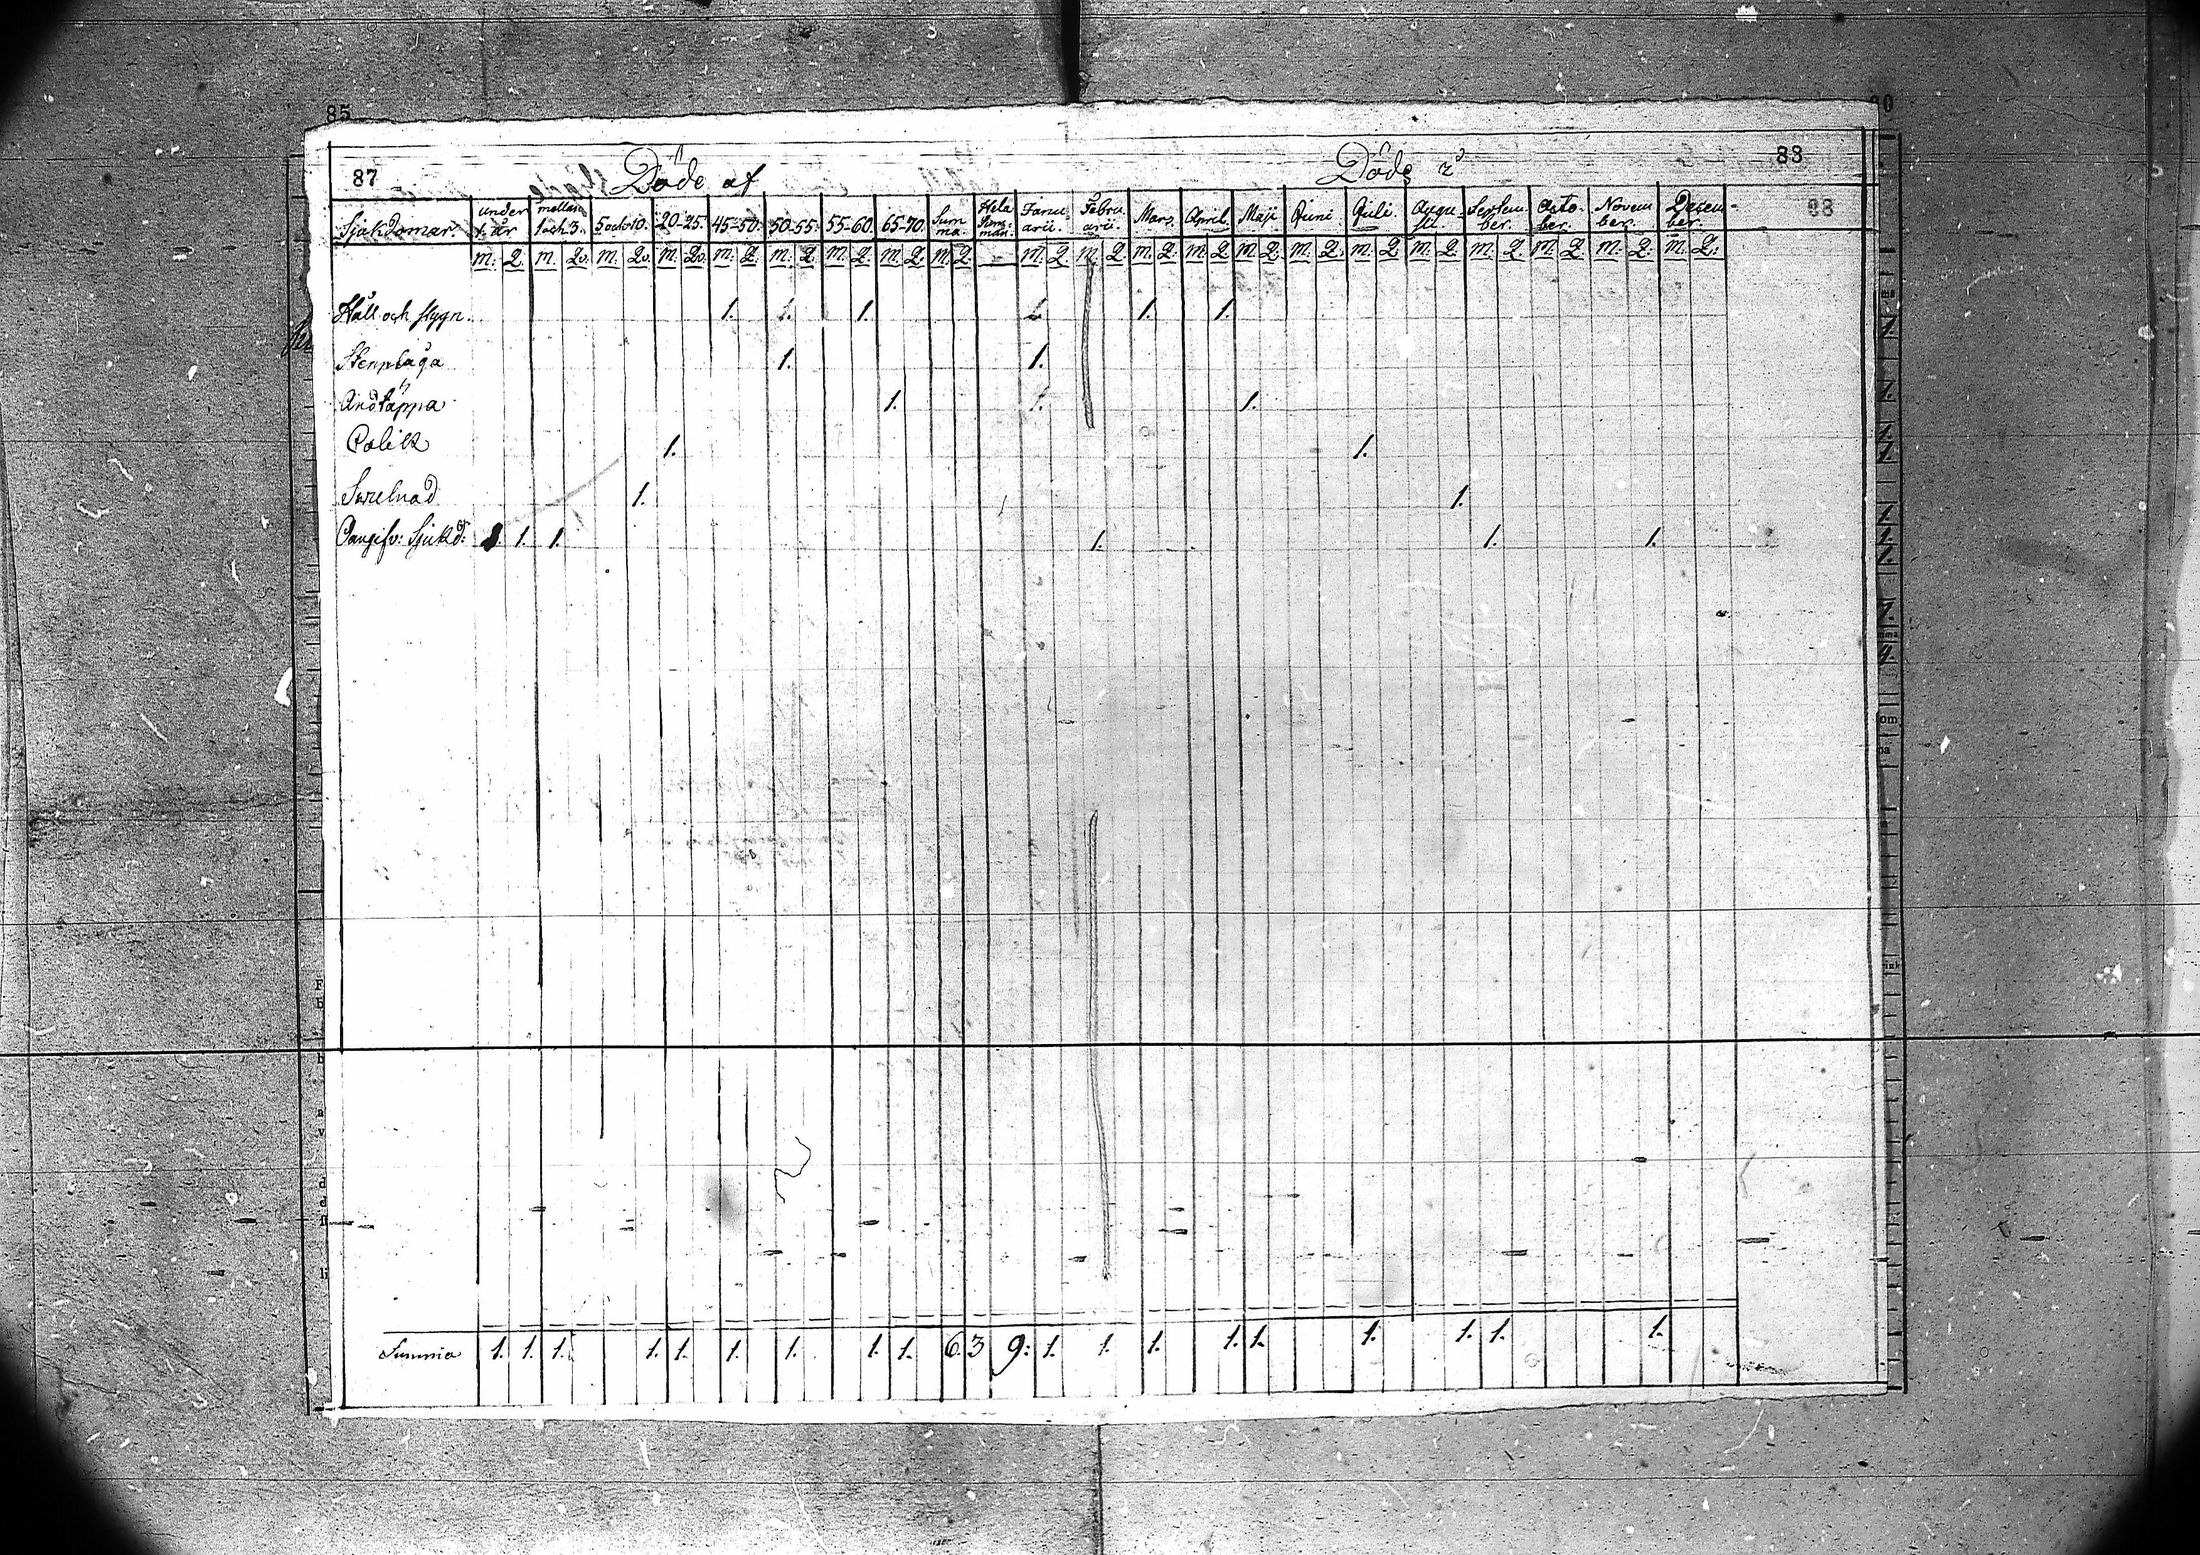 85
90
87 Döde af Döde i 88
88
Sjukdomar. under 1. år mellan 1 och 3. 5 och 10. 20-25. 45-50. 50-55. 55-60. 65-70. Summa Hela Summan. Januarii. Februarii. Mars. April. Maji Juni Juli. Augusti. September. Octo-ber. November. December.
M. Q. M. Qv. M. Qv. M. Qv. M. Q M. Q M. Q M. Q. M. Q. M. Q M. Q. M. Q. M. Q M. Q. M. Q. M. Q M. Q. M. Q. M. Q. M. Q. M. Q:
Håll och stygn. 1. 1. 1. 1. 1.
Stenplåga 1. 1.
Andtäppa 1. 1. 1.
Colik 1. 1.
1. 1.
Oangifv: Sjukd: 1. 1. 1. 1. 1. 1.
Summa 1. 1. 1. 1. 1. 1. 1. 1. 1. 6. 3 9. 1. 1. 1. 1. 1. 1. 1. 1. 1.